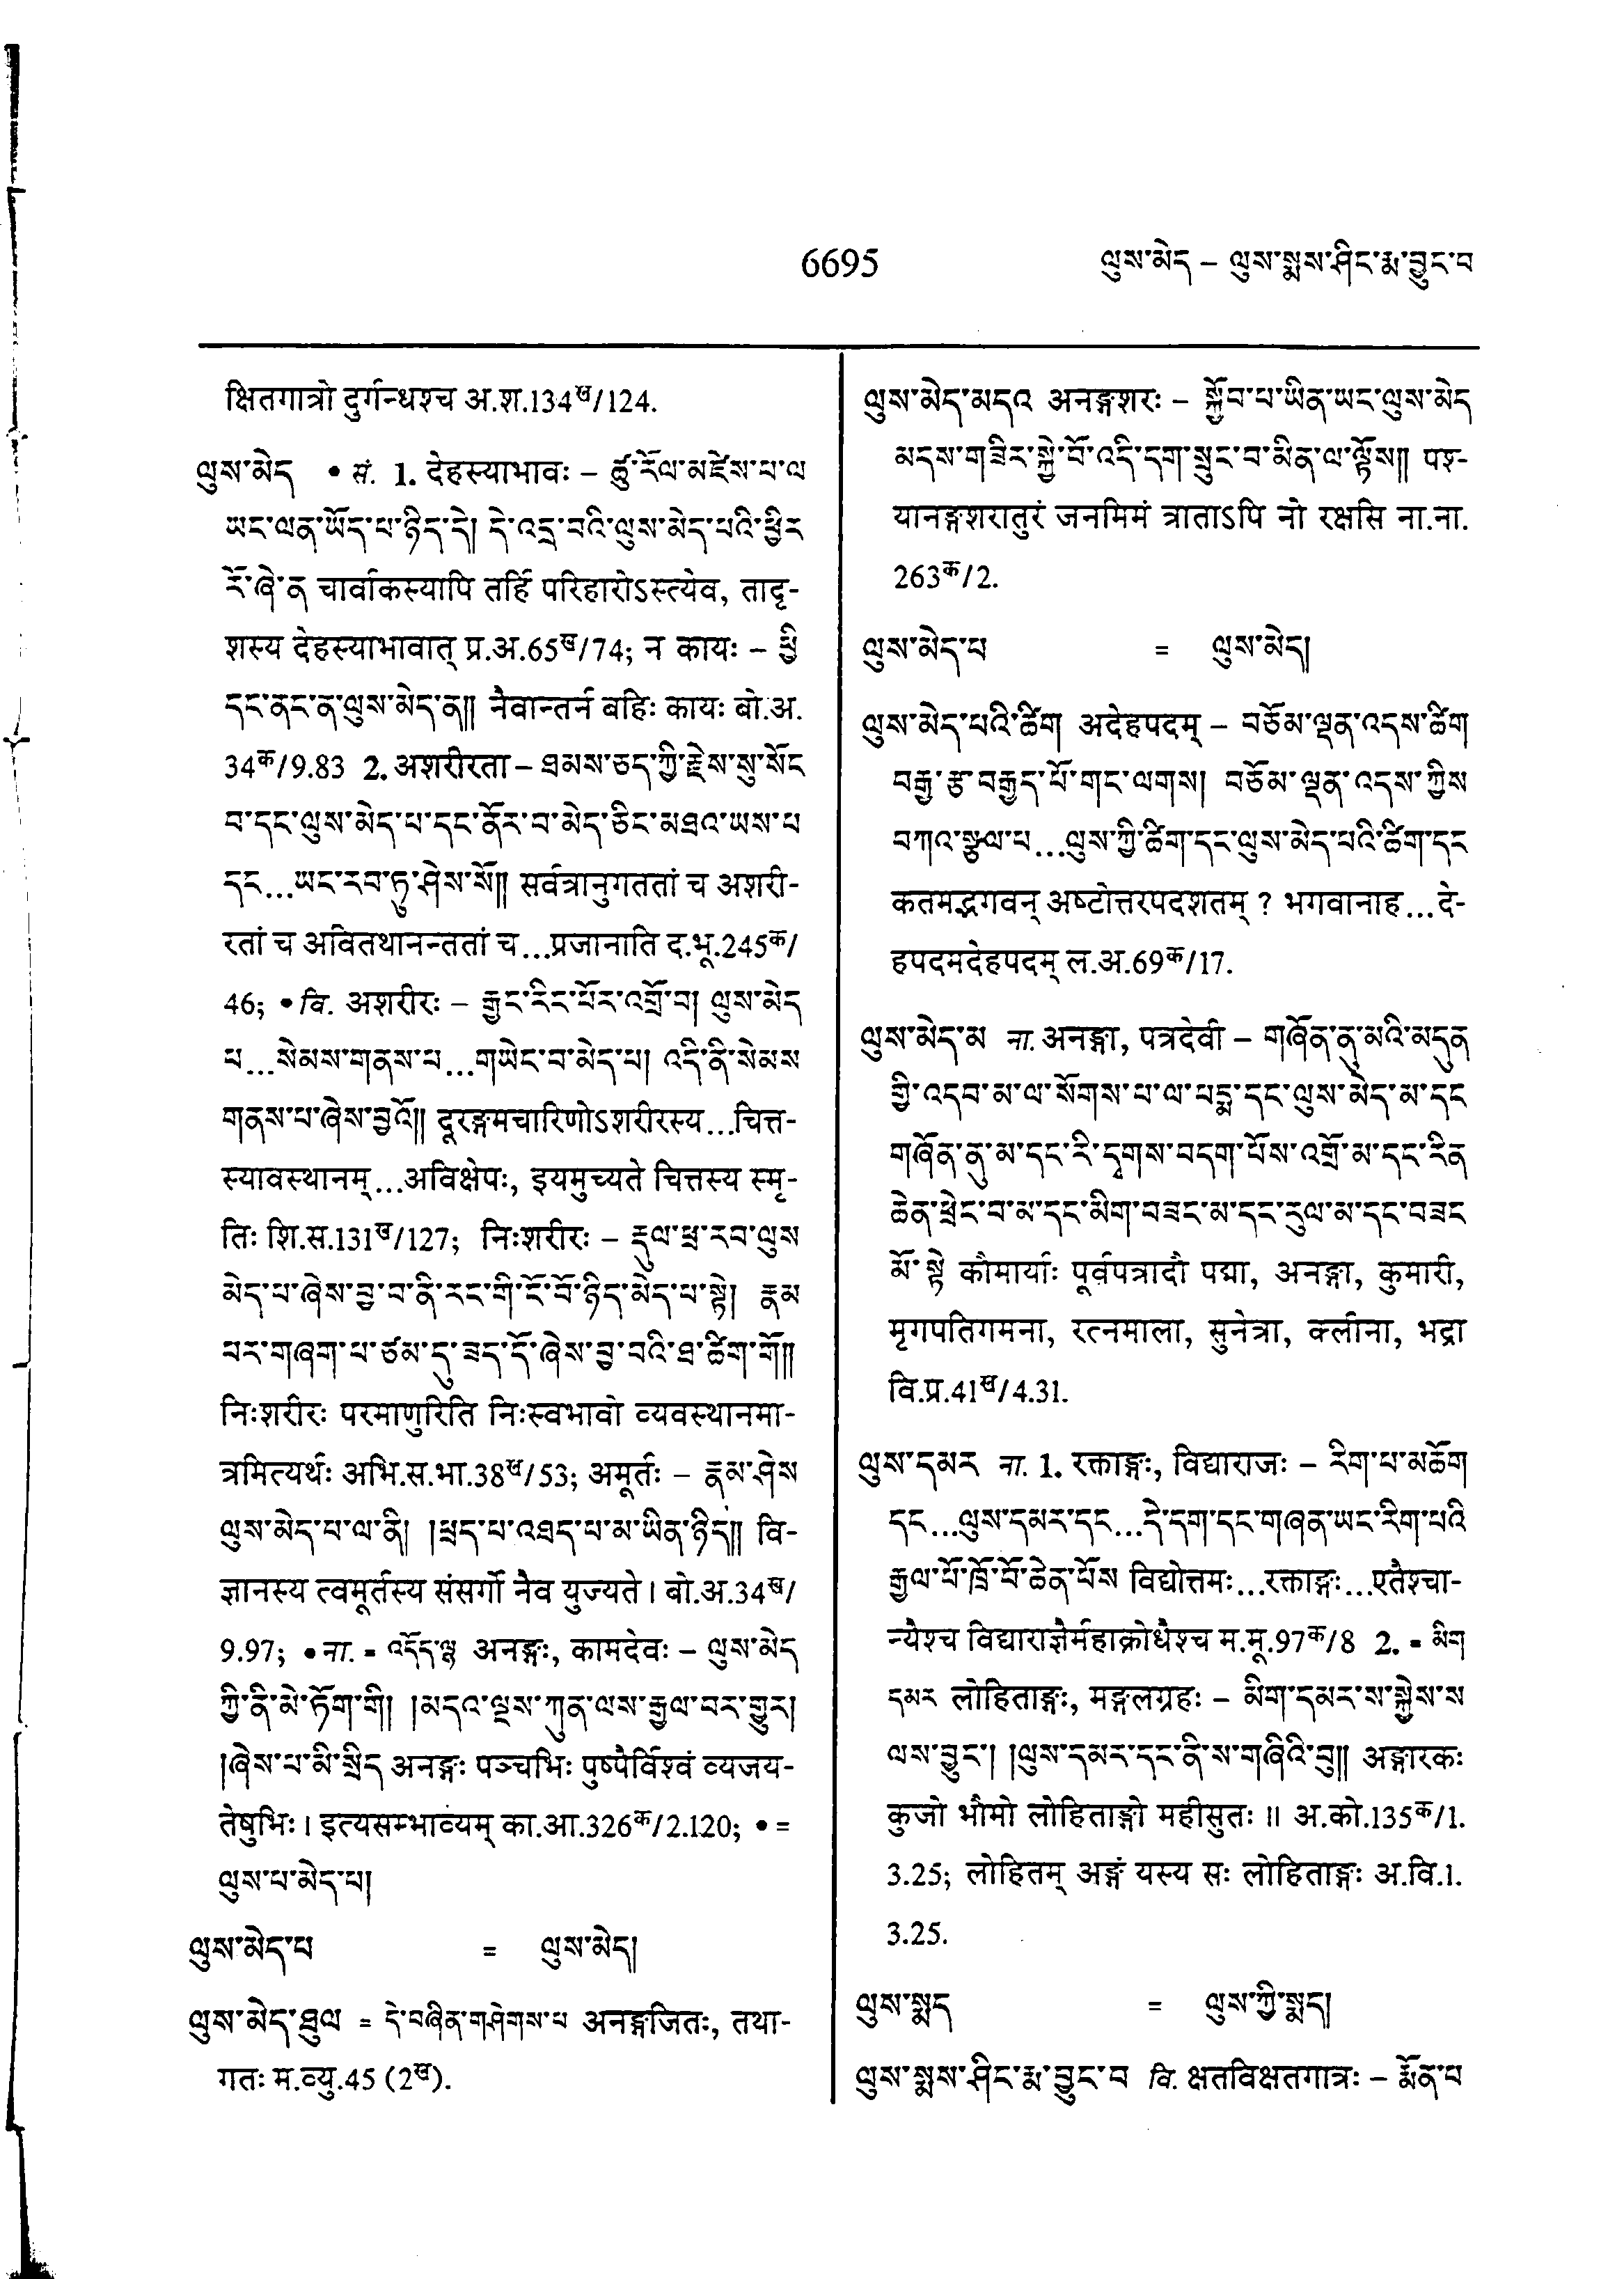 6695
ལུས་མེད – ལུས་སྨས་ཤིང་རྨ་བྱུང་བ
क्षितगात्रो दुर्गन्धश्च अ.श.134ख/124.
ལུས་མེད • सं. 1. देहस्याभावः – ཚུ་རོལ་མཛེས་པ་ལ
ཡང་ལན་ཡོད་པ་ཉིད་དེ། དེ་འདྲ་བའི་ལུས་མེད་པའི་ཕྱིར
རོ་ཞེ་ན चार्वाकस्यापि तर्हि परिहारोऽस्त्येव, तादृ-
शस्य देहस्याभावात् प्र.अ.65ख/74; न कायः – ཕྱི
དང་ནང་ན་ལུས་མེད་ན།། नैवान्तर्न बहिः कायः बो.अ.
34क/9.83 2. अशरीरता – ཐམས་ཅད་ཀྱི་རྗེས་སུ་སོང
བ་དང་ལུས་མེད་པ་དང་ནོར་བ་མེད་ཅིང་མཐའ་ཡས་པ
དང...ཡང་རབ་ཏུ་ཤེས་སོ།། सर्वत्रानुगततां च अशरी-
रतां च अवितथानन्ततां च...प्रजानाति द.भू.245क/
46; • वि. अशरीरः – རྒྱང་རིང་པོར་འགྲོ་བ། ལུས་མེད
པ...སེམས་གནས་པ...གཡེང་བ་མེད་པ། འདི་ནི་སེམས
གནས་པ་ཞེས་བྱའོ།། दूरङ्गमचारिणोऽशरीरस्य...चित्त-
स्यावस्थानम्...अविक्षेपः, इयमुच्यते चित्तस्य स्मृ-
तिः शि.स.131ख/127; निःशरीरः – རྡུལ་ཕྲ་རབ་ལུས
མེད་པ་ཞེས་བྱ་བ་ནི་རང་གི་ངོ་བོ་ཉིད་མེད་པ་སྟེ། རྣམ
པར་གཞག་པ་ཙམ་དུ་ཟད་དོ་ཞེས་བྱ་བའི་ཐ་ཚིག་གོ།།
निःशरीरः परमाणुरिति निःस्वभावो व्यवस्थानमा-
त्रमित्यर्थः अभि.स.भा.38ख/53; अमूर्तः – རྣམ་ཤེས
ལུས་མེད་པ་ལ་ནི། །ཕྲད་པ་འཐད་པ་མ་ཡིན་ཉིད།། वि-
ज्ञानस्य त्वमूर्तस्य संसर्गो नैव युज्यते। बो.अ.34ख/
9.97; • ना. = འདོད་ལྷ अनङ्गः, कामदेवः – ལུས་མེད
ཀྱི་ནི་མེ་ཏོག་གི། །མདའ་ལྔས་ཀུན་ལས་རྒྱལ་བར་གྱུར།
།ཞེས་པ་མི་སྲིད अनङ्गः पञ्चभिः पुष्पैर्विश्वं व्यजय-
तेषुभिः। इत्यसम्भाव्यम् का.आ.326क/2.120; • =
ལུས་པ་མེད་པ།
ལུས་མེད་པ = ལུས་མེད།
ལུས་མེད་ཐུལ = དེ་བཞིན་གཤེགས་པ अनङ्गजितः, तथा-
गतः म.व्यु.45 (2ख).
ལུས་མེད་མདའ अनङ्गशरः – སྐྱོབ་པ་ཡིན་ཡང་ལུས་མེད
མདས་གཟིར་སྐྱེ་བོ་འདི་དག་སྲུང་བ་མིན་ལ་ལྟོས།། पश्-
यानङ्गशरातुरं जनमिमं त्राताऽपि नो रक्षसि ना.ना.
263क/2.
ལུས་མེད་པ = ལུས་མེད།
ལུས་མེད་པའི་ཚིག अदेहपदम् – བཅོམ་ལྡན་འདས་ཚིག
བརྒྱ་རྩ་བརྒྱད་པོ་གང་ལགས། བཅོམ་ལྡན་འདས་ཀྱིས
བཀའ་སྩལ་པ...ལུས་ཀྱི་ཚིག་དང་ལུས་མེད་པའི་ཚིག་དང
कतमद्भगवन् अष्टोत्तरपदशतम् ? भगवानाह...दे-
हपदमदेहपदम् ल.अ.69क/17.
ལུས་མེད་མ ना. अनङ्गा, पत्रदेवी – གཞོན་ནུ་མའི་མདུན
གྱི་འདབ་མ་ལ་སོགས་པ་ལ་པདྨ་དང་ལུས་མེད་མ་དང
གཞོན་ནུ་མ་དང་རི་དྭགས་བདག་པོས་འགྲོ་མ་དང་རིན
ཆེན་ཕྲེང་བ་མ་དང་མིག་བཟང་མ་དང་རུལ་མ་དང་བཟང
མོ་སྟེ कौमार्याः पूर्वपत्रादौ पद्मा, अनङ्गा, कुमारी,
मृगपतिगमना, रत्नमाला, सुनेत्रा, क्लीना, भद्रा
वि.प्र.41ख/4.31.
ལུས་དམར ना. 1. रक्ताङ्गः, विद्याराजः – རིག་པ་མཆོག
དང...ལུས་དམར་དང...དེ་དག་དང་གཞན་ཡང་རིག་པའི
རྒྱལ་པོ་ཁྲོ་བོ་ཆེན་པོས विद्योत्तमः...रक्ताङ्गः...एतैश्चा-
न्यैश्च विद्याराज्ञैर्महाक्रोधैश्च म.मू.97क/8 2. = མིག
དམར लोहिताङ्गः, मङ्गलग्रहः – མིག་དམར་ས་སྐྱེས་ས
ལས་བྱུང་། །ལུས་དམར་དང་ནི་ས་གཞིའི་བུ།། अङ्गारकः
कुजो भौमो लोहिताङ्गो महीसुतः॥ अ.को.135क/1.
3.25; लोहितम् अङ्गं यस्य सः लोहिताङ्गः अ.वि.1.
3.25.
ལུས་སྨད = ལུས་ཀྱི་སྨད།
ལུས་སྨས་ཤིང་རྨ་བྱུང་བ वि. क्षतविक्षतगात्रः – རྨོན་པ